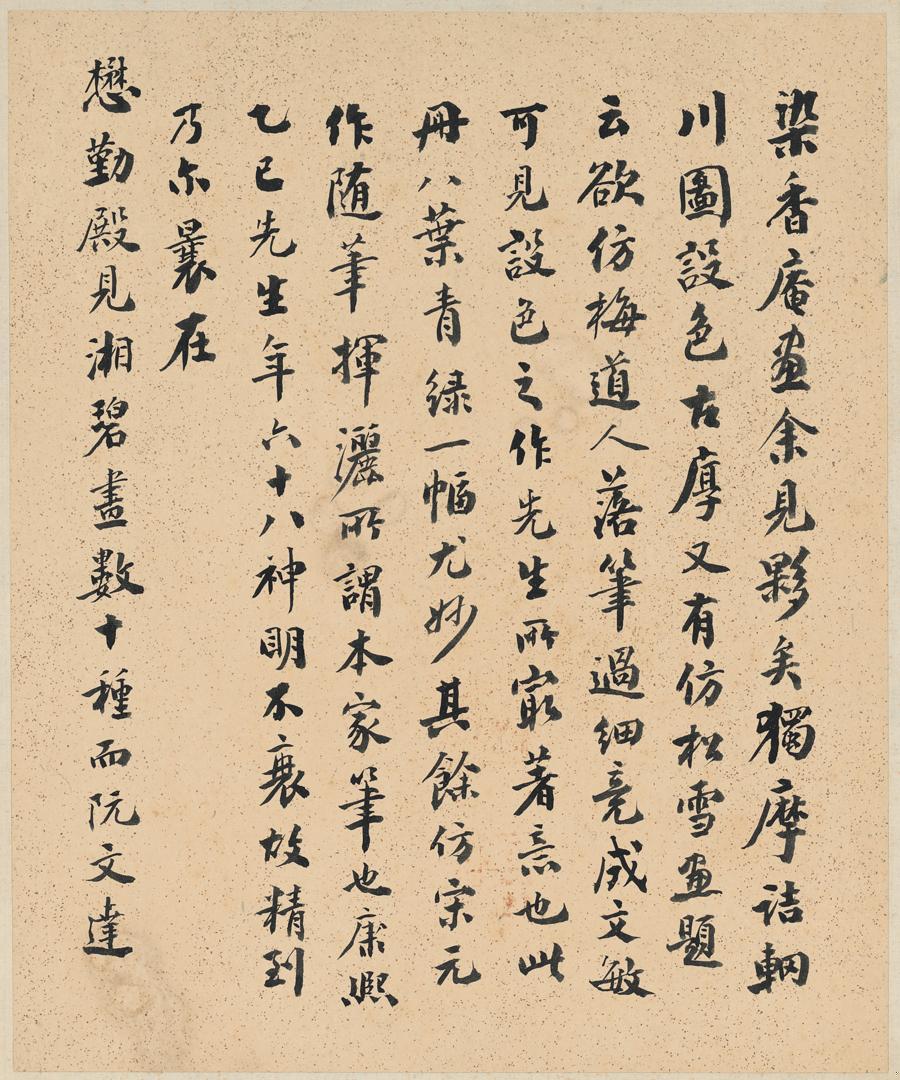 染香庵画余見夥矣獨摩詰輞
川圖設色古厚又有仿松雪画題
云欲仿梅道人落筆過細竟成文敏
可見設色之作先生所最著意也此
冊八葉青緑一幅尤妙其餘仿宋元
作随筆揮灑所謂本家筆也康熙
乙巳先生年六十八神明不衰故精到
乃尓曩在
懋勤殿見湘碧畫數十種而阮文達